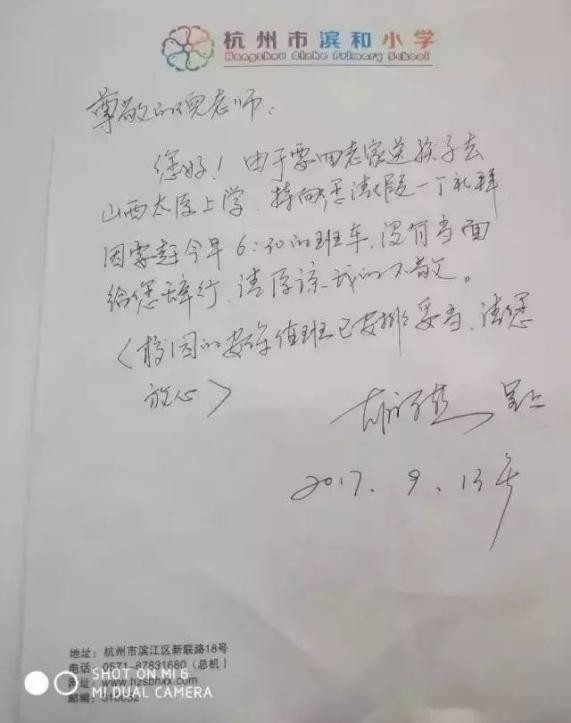 杭州市滨和小学
Hangzhou Binhe Primary School
尊敬的倪老师：
您好！由于要回老家送孩子去
山西太原上学，特向您请假一丁礼拜
因要赶今早6:30的班车，没有当面
给您辞行，请原谅我的不敬。
（校园的安全值班已安排妥当，请您
放心）
呈上
2017.9.13
地址：杭州市滨江区新联路18号
电话：0571-87831680（总机）
www.hzsbhxx.com
邮编：
SHOT ON MI 6
MI DUAL CAMERA